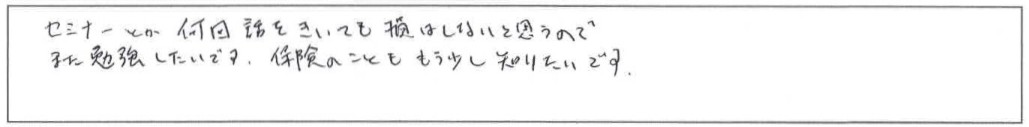 セミナーとか 何回 話をきいても 損はしないと思うので
また 勉強したいです. 保険のことも もう少し 知りたいです.